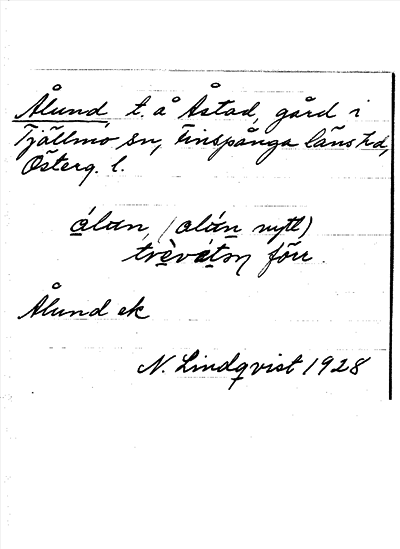 Ålund t. å Åstad, gård i
Tjällmo sn, Finspånga läns hd,
Österg. l.
ålun, (alun nytt)
trèvátən förr.
Ålund ek
N. Lindqvist 1928